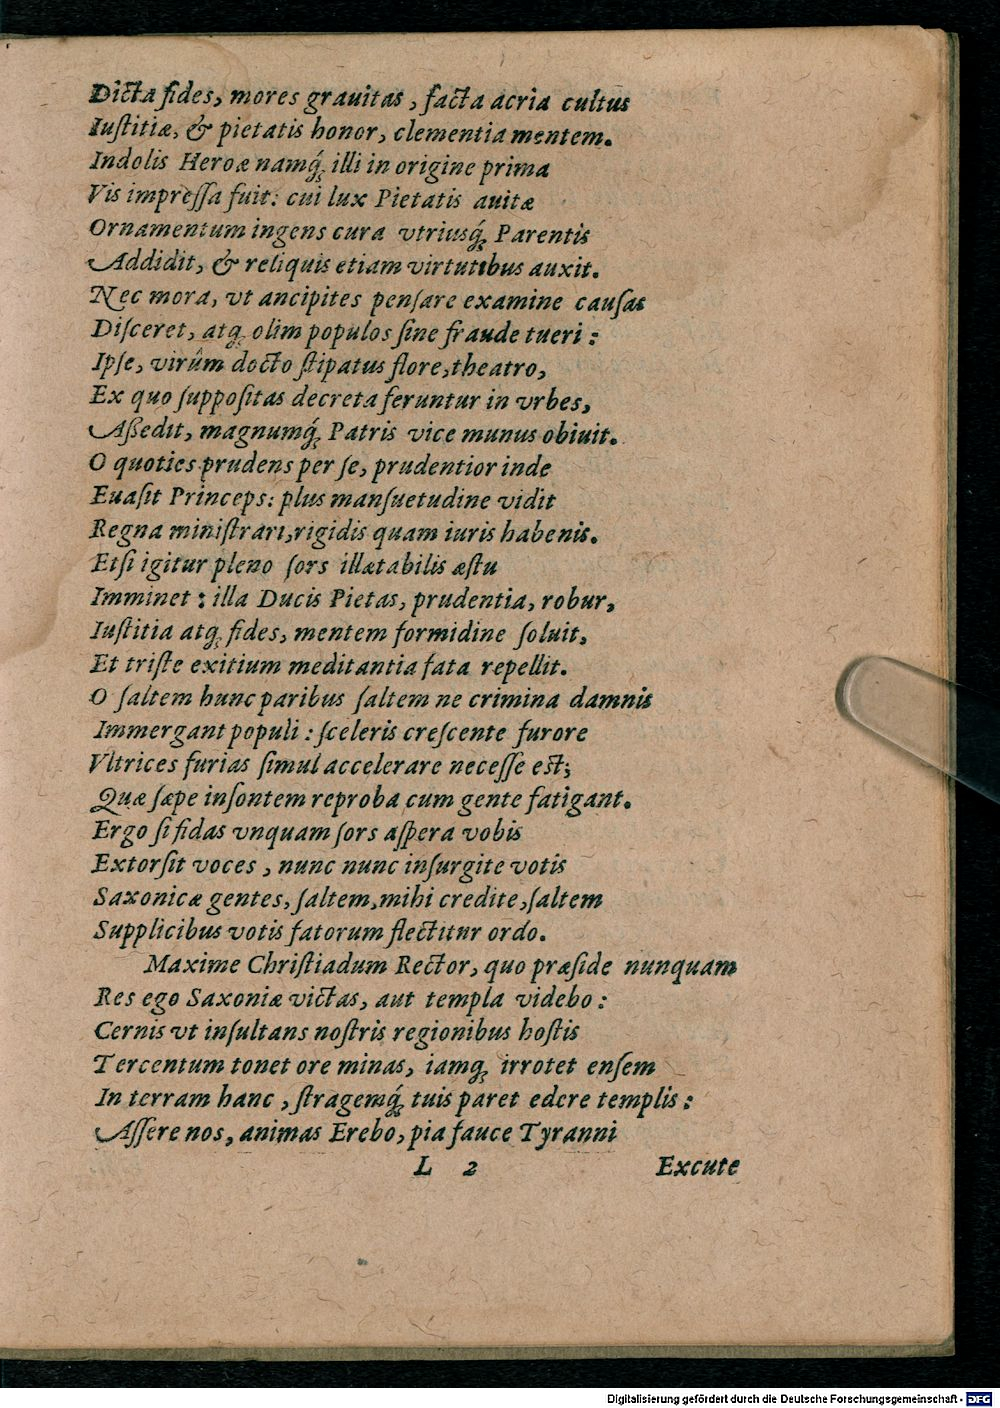 Dicta fides, mores grauitas, facta acria cultus
Iuſtitiæ, & pietatis honor, clementia mentem.
Indolis Heroæ namq́; illi in origine prima
Vis impreſſa fuit: cui lux Pietatis auitæ
Ornamentum ingens cura vtriusq́; Parentis
Addidit, & reliquis etiam virtutibus auxit.
Nec mora, vt ancipites penſare examine cauſas
Diſceret, atq; olim populos ſine fraude tueri:
Ipſe, virûm docto ſtipatus flore, theatro,
Ex quo ſuppoſitas decreta feruntur in vrbes,
Aßedit, magnumq́; Patris vice munus obiuit.
O quoties prudens per ſe, prudentior inde
Euaſit Princeps: plus manſuetudine vidit
Regna miniſtrari, rigidis quam iuris habenis.
Etſi igitur pleno ſors illætabilis æſtu
Imminet: illa Ducis Pietas, prudentia, robur,
Iuſtitia atq; fides, mentem formidine ſoluit,
Et triſte exitium meditantia fata repellit.
O ſaltem hunc paribus ſaltem ne crimina damnis
Immergant populi: ſceleris creſcente furore
Vltrices furias ſimul accelerare neceſſe eſt;
Quæ ſæpe inſontem reproba cum gente fatigant.
Ergo ſi fidas vnquam ſors aſpera vobis
Extorſit voces, nunc nunc inſurgite votis
Saxonicæ gentes, ſaltem, mihi credite, ſaltem
Supplicibus votis fatorum flectitur ordo.
Maxime Chriſtiadum Rector, quo præſide nunquam
Res ego Saxoniæ victas, aut templa videbo:
Cernis vt inſultans noſtris regionibus hoſtis
Tercentum tonet ore minas, iamq; irrotet enſem
In terram hanc, ſtragemq́; tuis paret edere templis:
Aſſere nos, animas Erebo, pia fauce Tyranni
L 2 Excute
Digitalisierung gefördert durch die Deutsche Forschungsgemeinschaft - DFG